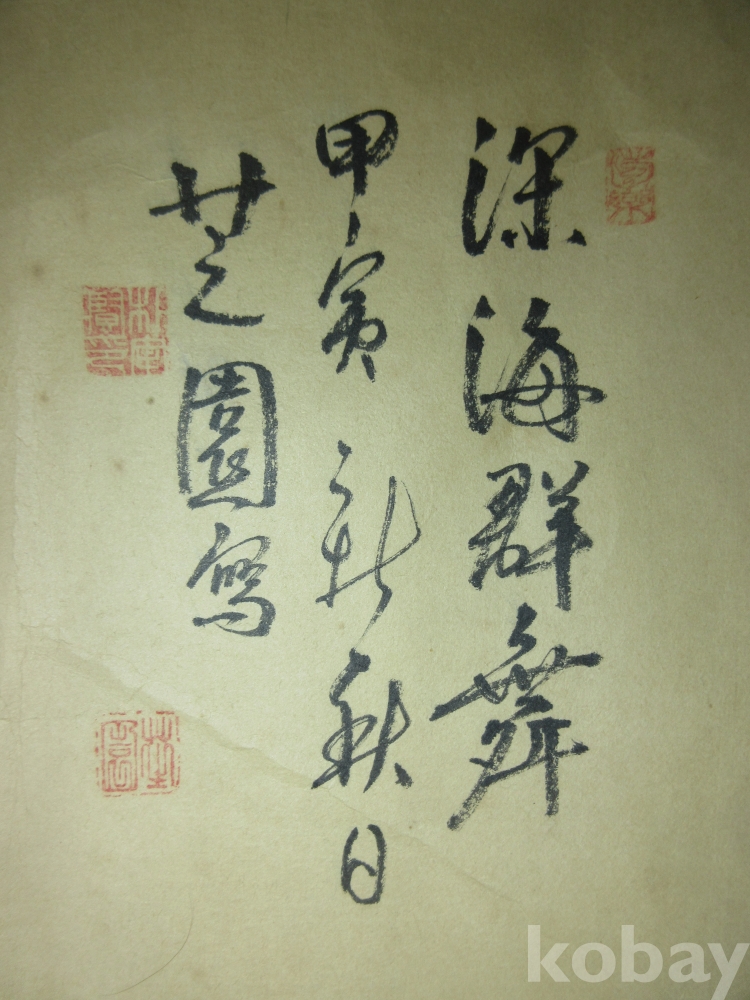 深海群舞
甲寅新秋日
芝園寫
kobay